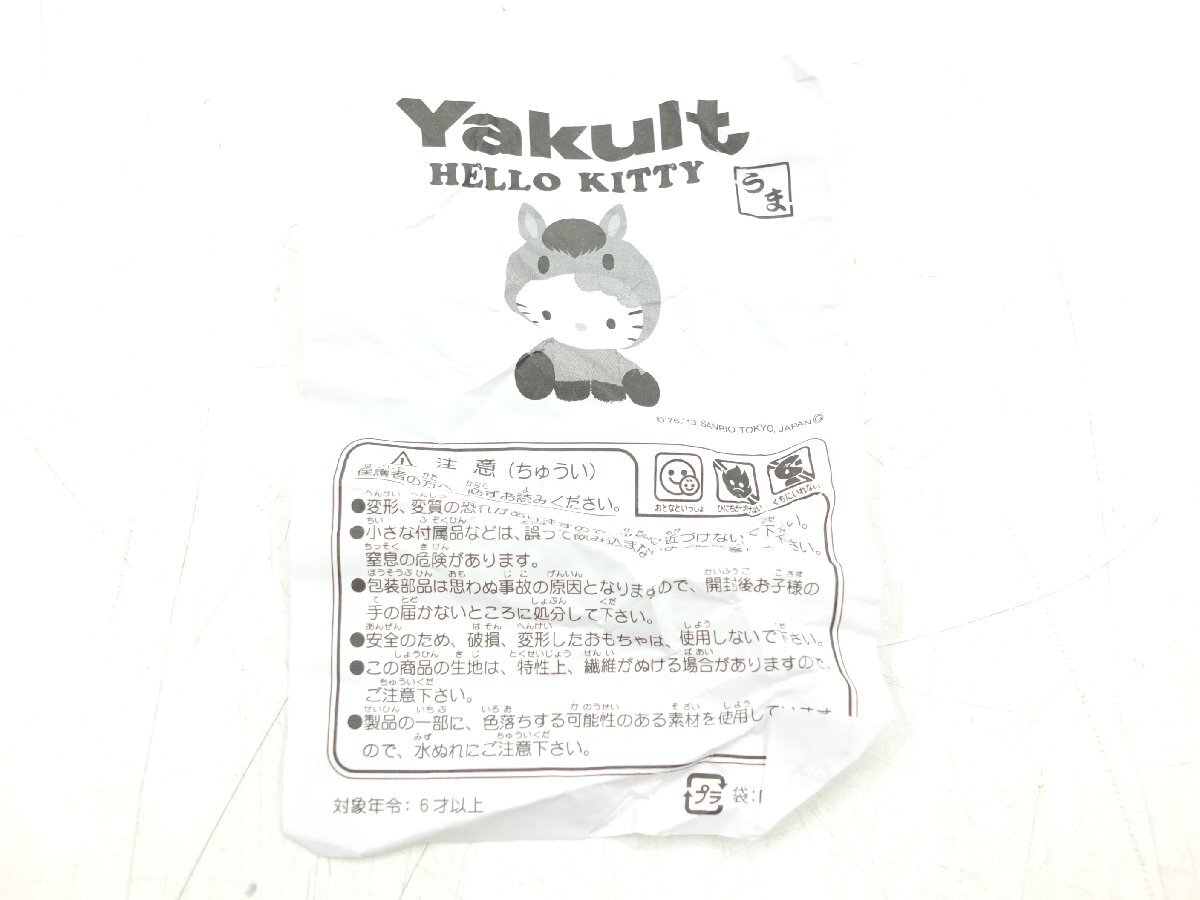 Yakult
HELLO KITTY
うま
©'76,'13 SANRIO TOKYO, JAPAN
注意(ちゅうい)
おとなといっしょ
くちにいれない
保護者の方へ 必ずお読みください。
●変形、変質の恐れがありますので、
近づけないで下さい。
●小さな付属品などは、誤って飲み込まない
下さい。
窒息の危険があります。
●包装部品は思わぬ事故の原因となりますので、開封後お子様の
手の届かないところに処分して下さい。
●安全のため、破損、変形したおもちゃは、使用しないで下さい。
●この商品の生地は、特性上、繊維がぬける場合がありますので、
ご注意下さい。
●製品の一部に、色落ちする可能性のある素材を使用しています
ので、水ぬれにご注意下さい。
対象年令:6才以上
プラ 袋: